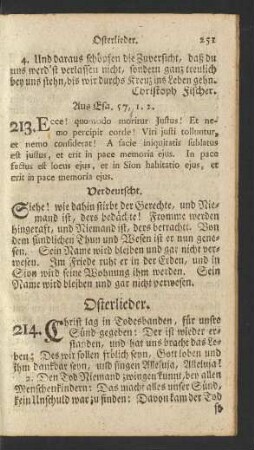 Osterlieder. 251
4. Und daraus schöpfen die Zuversicht, daß du
uns werd'st verlassen nicht, sondern ganz treulich
bey uns stehn, bis wir durchs Kreuz ins Leben gehn.
Christoph Fischer.
Aus Esa. 57, 1. 2.
213. Ecce! quomodo moritur Justus! Et ne-
mo percipit corde! Viri justi tolluntur,
et nemo considerat! A facie iniquitatis sublatus
est justus, et erit in pace memoria ejus. In pace
factus est locus ejus, et in Sion habitatio ejus, et
erit in pace memoria ejus.
Verdeutscht.
Siehe! wie dahin stirbt der Gerechte, und Nie-
mand ist, ders bedächte! Fromme werden
hingeraft, und Niemand ist, ders betracht. Von
dem sündlichen Thun und Wesen ist er nun gene-
sen. Sein Name wird bleiben und gar nicht verwe-
sen. Im Friede ruht er in der Erden, und in
Sion wird seine Wohnung ihm werden. Sein
Name wird bleiben und gar nicht verwesen.
Osterlieder.
214. Christ lag in Todesbanden, für unsre
Sünd gegeben: Der ist wieder er-
standen, und hat uns bracht das Le-
ben; Des wir sollen frölich seyn, Gott loben und
ihm dankbar seyn, und singen Alleluja, Alleluja!
2. Den Tod Niemand zwingen kunnt, bey allen
Menschenkindern: Das macht alles unser Sünd,
kein Unschuld war zu finden: Davon kam der Tod
so